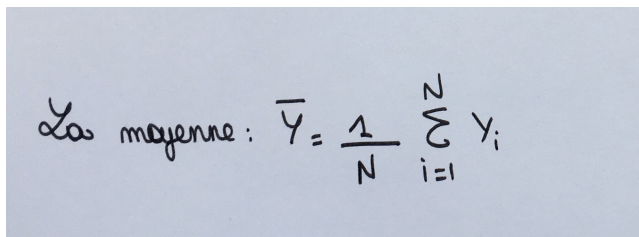 La moyenne: Ȳ = 1/N ∑_{i=1}^{N} Y_i